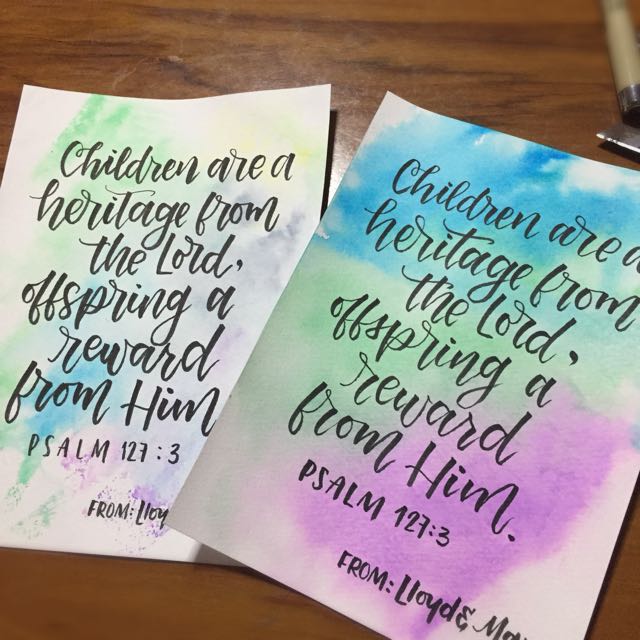 Children are a
heritage from
the Lord,
offspring a
reward
from Him
PSALM 127:3
FROM:
Children are a
heritage from
the Lord,
offspring a
reward
from Him.
PSALM 127:3
FROM: Lloyd &